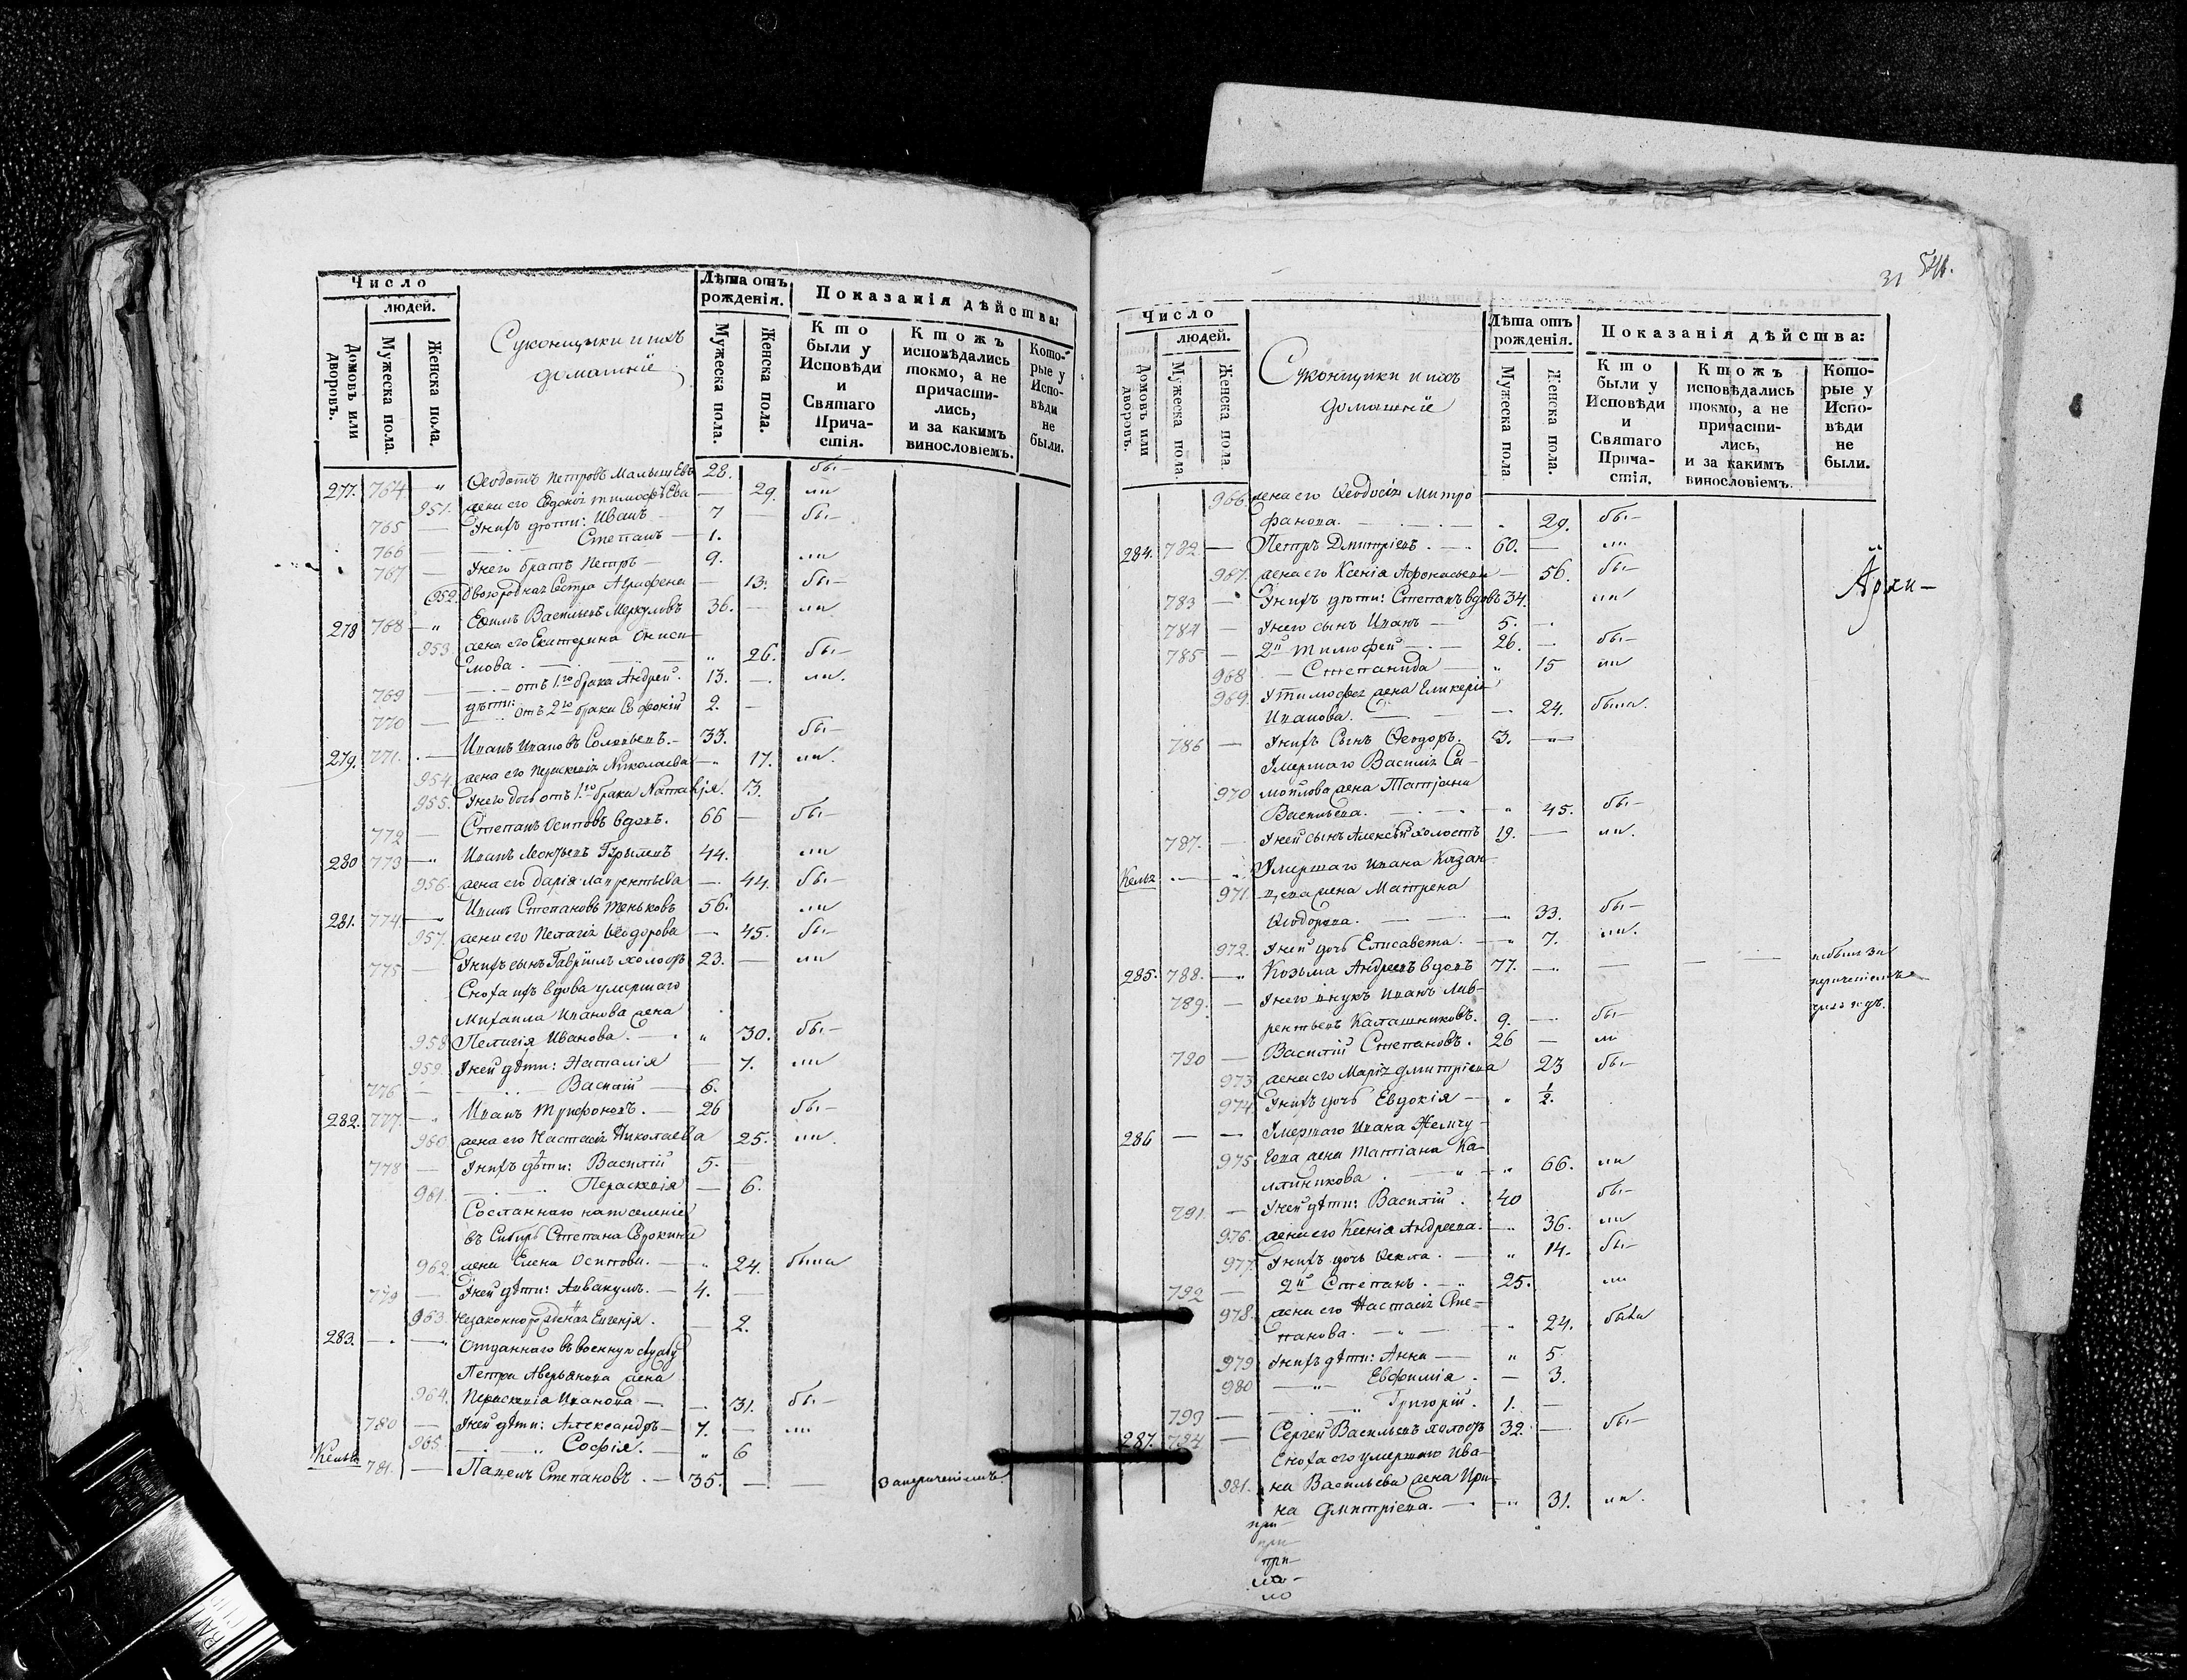 Число
людей.
Домовъ или дворовъ.
Мужеска пола
Женска пола.
Суконщики и ихъ
домашніе
Лѣта отъ
рожденія.
Мужеска пола.
Женска пола.
Показанія дѣйства:
Кто
были у
Исповѣди
и
Святаго
Прича-
стія.
Ктожъ
исповѣдались
токмо, а не
причасти-
лись,
и за какимъ
винословіемъ.
Кото-
рые у
Испо-
вѣди
не
были.
277. 764 " Ѳеодотъ Петровъ 28. бы-
951. жена его Евдокія Тимофѣева — 29. ли
765 — У нихъ дѣти: Иванъ — 7 — бы-
766 — Степанъ — 1.
767 — У него братъ Петръ — 9. ли
952. Двоюродная сестра Агрифена — 13. бы-
278 768 — " Ефимъ Васильевъ Меркуловъ 36. — ли
953 жена его Екатерина Ониси-
мова . — " 26. бы-
769 — отъ 1го брака Андрей. 13. — ли.
770 — дѣти: отъ 2го брака 2. —
279. 771. — Иванъ Ивановъ Соловьевъ. — 33. бы-
954 жена его Николаева — " 17. ли.
955. У него дочь отъ 1го брака Наталія. 13.
772 — Степанъ Осиповъ вдовъ. 66 — бы-
280 773 — " Иванъ 44. ли
956 жена его Дарія Лаврентьева — 44. бы-
281. 774 — Иванъ Степановъ Теньковъ 56. ли
957. жена его Пелагія Ѳеодорова — 45. бы-
775 — У нихъ сынъ Гавріилъ холостъ 23. — ли
Сноха ихъ вдова умершаго
Михаила Иванова жена
958 Пелагія Иванова. — " 30. бы-
959. У ней дѣти: Наталія — 7. ли
776 — Василій — 6.
282. 777. — " Иванъ Трифоновъ. — 26 бы-
960 жена его Настасія Николаева 25. ли.
778 — У нихъ дѣти: Василій 5. —
961. Параскевія — 6.
Сосланнаго на поселеніе
въ Сибирь Степана Сорокина
962. жена Елена Осипова. — " 24. была
779 — У ней дѣти: Аввакумъ. — 4. —
963. незаконнорожденная Евгенія. — 2.
283. — " Отданнаго въ военную службу
Петра Аверьянова жена
964. Параскевія Иванова — 31. бы-
780 — У ней дѣти: Александръ — 7. — ли
965. — " Софія. — " 6
781. — Павелъ Степановъ. — 35. — —
31 541.
Число
людей.
Домовъ или дворовъ.
Мужеска пола
Женска пола.
Суконщики и ихъ
домашніе
Лѣта отъ
рожденія.
Мужеска пола
Женска пола.
Показанія дѣйства:
Кто
были у
Исповѣди
и
Святаго
Прича-
стія.
Ктожъ
исповѣдались
токмо, а не
причасти-
лись,
и за какимъ
винословіемъ.
Кото-
рые у
Испо-
вѣди
не
были.
966. жена его Ѳеодосія Митро
фанова. — 29. бы-
284. 782 — Петръ Дмитріевъ. — 60. — ли
967. жена его Ксенія Афонасьева — 56. бы-
783 — У нихъ дѣти: Степанъ вдовъ 34. ли
784 — У него сынъ Иванъ — 5. —
785 — 2й Тимофей — 26. — бы-
968 — Степанида — " 15 ли
969. У Тимофея жена Гликерія
Иванова. — 24. была.
786 — У нихъ сынъ Ѳеодоръ. 3. —
Умершаго Василія Са-
970 мойлова жена Татіана
Васильева. — " 45. бы-
787. — У ней сынъ Алексѣй холостъ 19. — ли.
Умершаго Ивана Казан-
971. цева жена Матрена
Ѳеодорова. — 33. бы-
972. У ней дочь Елисавета. — " 7. ли.
285. 788. — " Козьма Андреевъ вдовъ 77. — —
789. — У него внукъ Иванъ Лав-
рентьевъ Калашниковъ. 9. — бы-
790 — Василій Степановъ. 26 — ли
973 жена его Марія Дмитріева 23 бы-
974. У нихъ дочь Евдокія — " ½.
286 — — Умершаго Ивана Жемчу-
975 гова жена Татіана Ка-
лашникова. — " 66. ли
791. — У ней дѣти: Василій. 40 бы-
976. жена его Ксенія Андреева. — " 36. ли
977. У нихъ дочь Ѳекла. — " 14. бы-
792 — 2й Степанъ. — " 25. ли
978. жена его Настасія Сте-
панова. — " 24. была
979 У нихъ дѣти: Анна — " 5
980 — " Евфимія. — 3.
793 — " Григорій. 1. —
287. 794 — Сергей Васильевъ холостъ 32. — бы-
Сноха его умершаго Ива-
981. на Васильева жена Ири-
на Дмитріева. — " 31. ли.
при-
при-
при-
ло-
ло